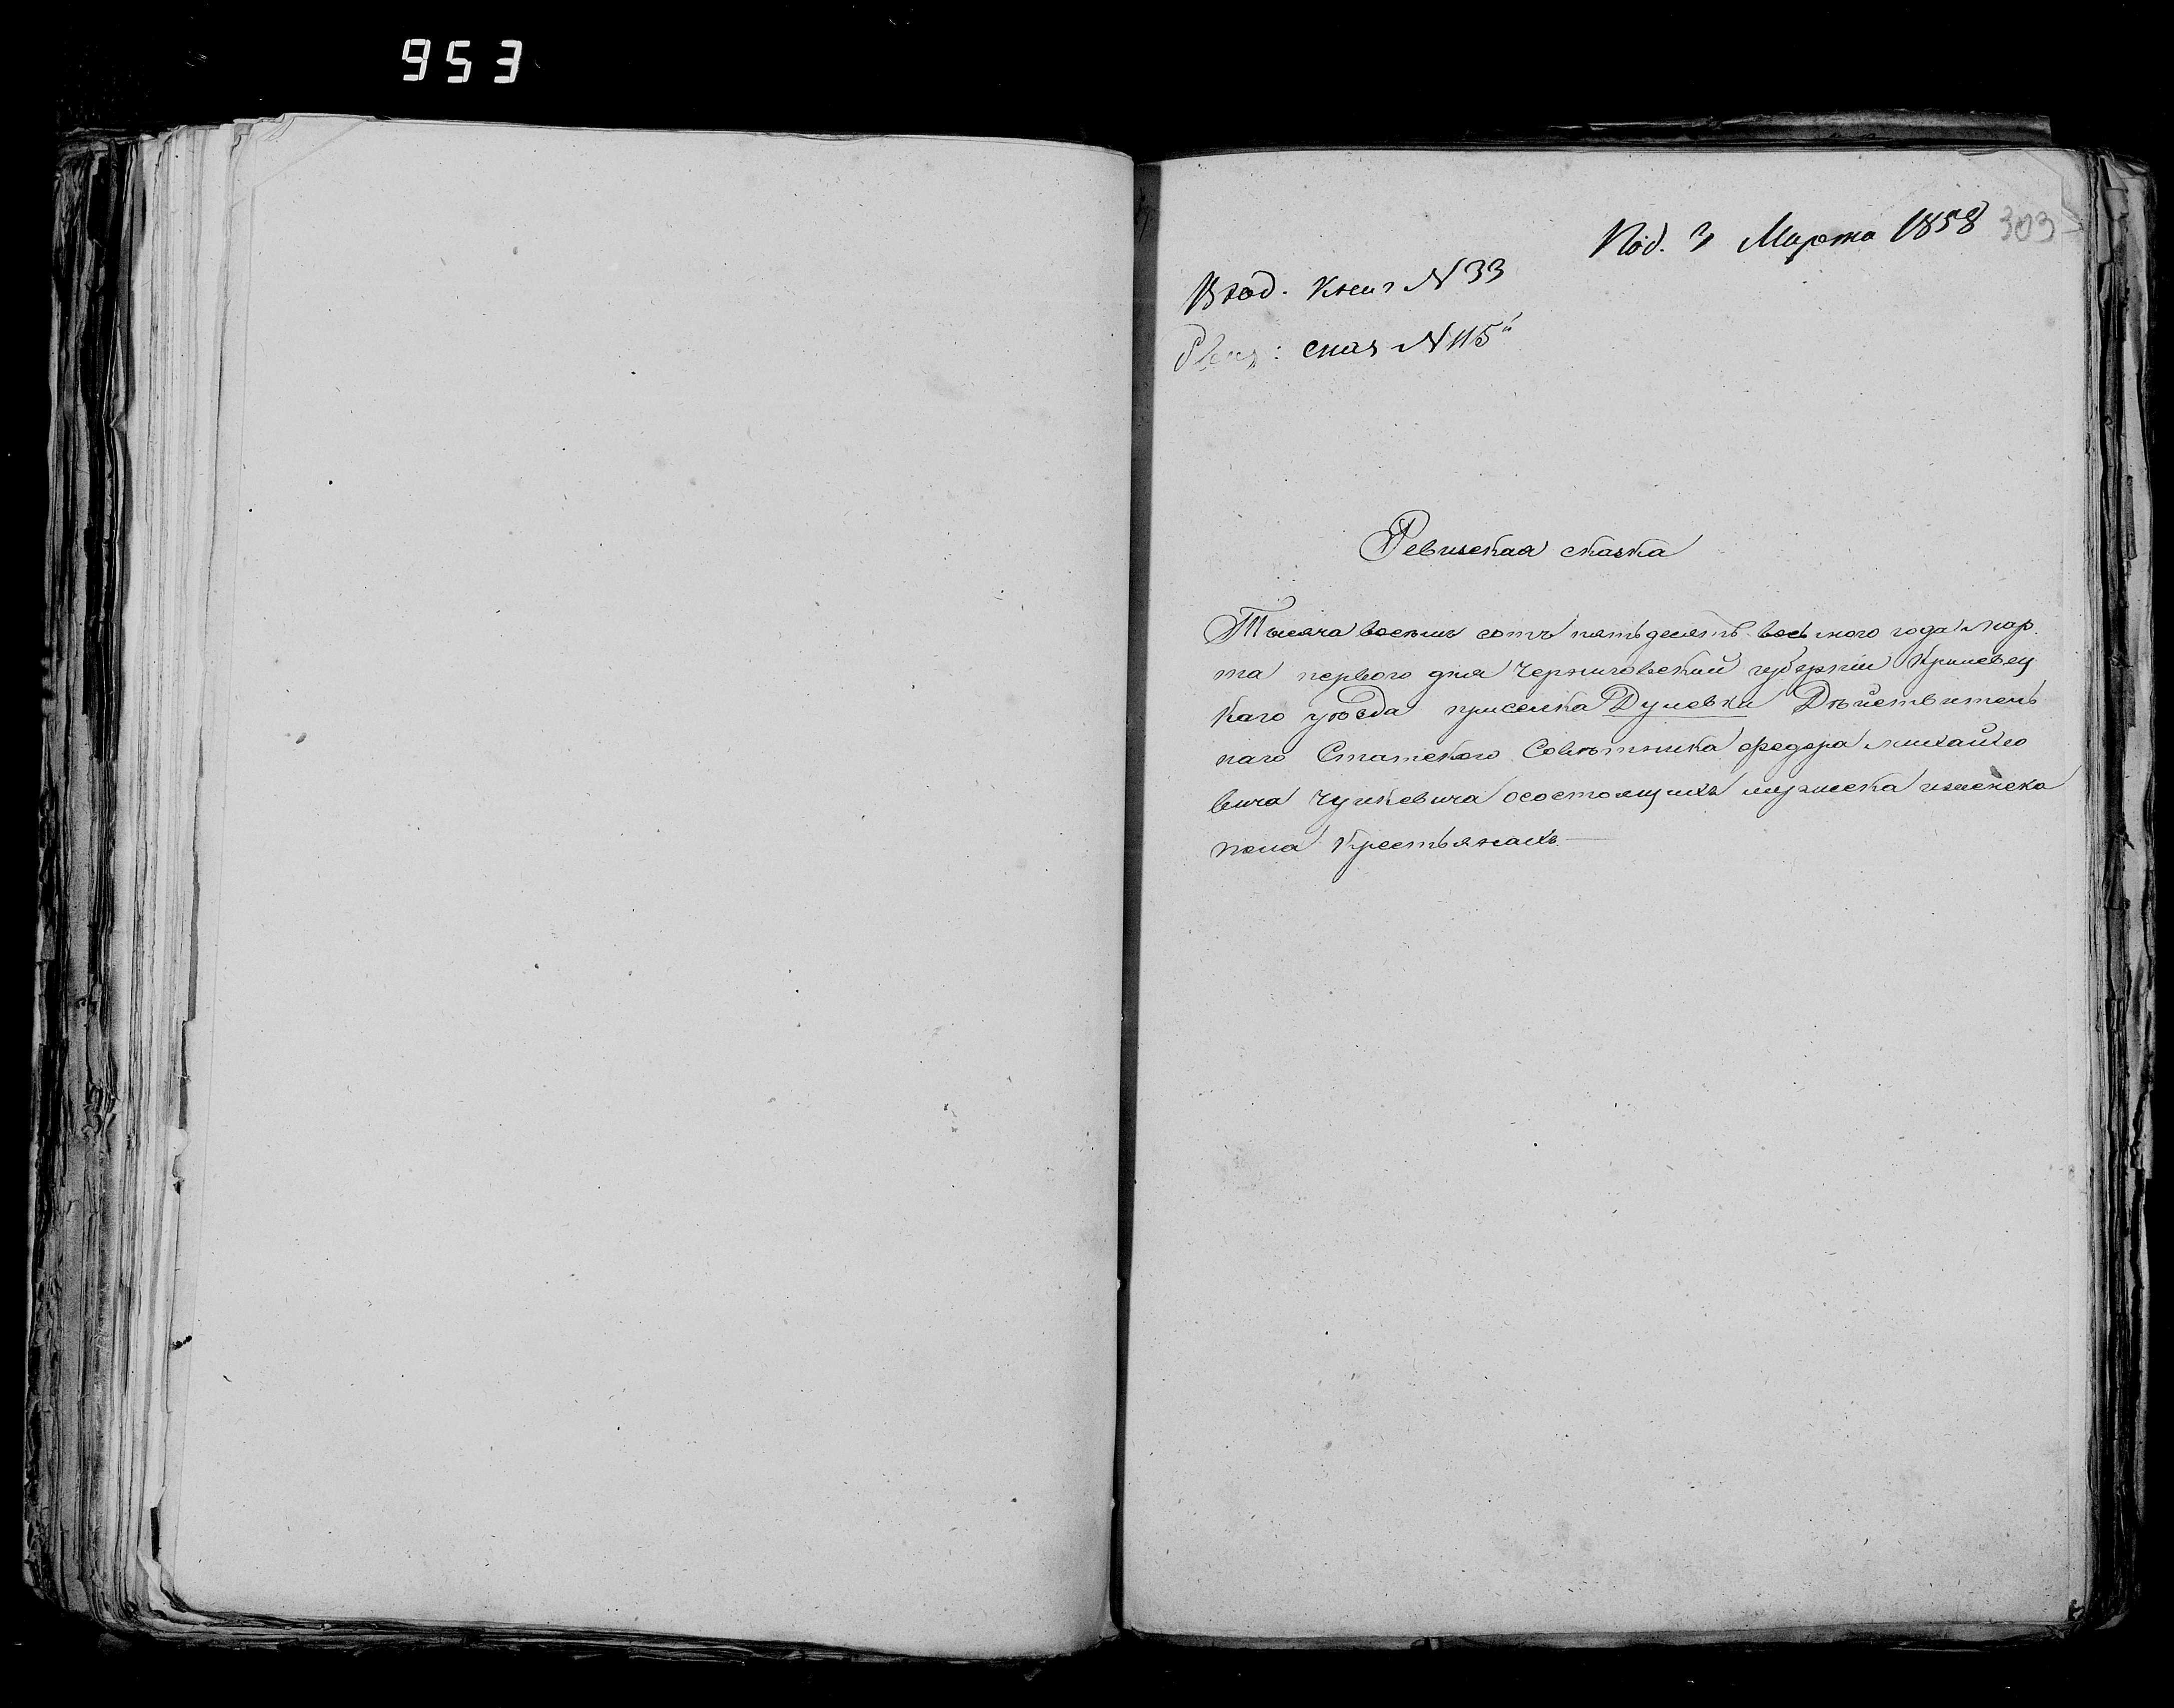 953
Под. 3 Марта 1858
303
Вход. Книг N 33
Ревиз: сказ N 115
Ревиская сказка
Тысяча восемь сотъ пятьдесятъ восьмого года мар
та первого дня Черниговской губернии Кролевец
каго уѣзда приселка Дунаевки Дѣйствитель
наго Статского Совѣтника федора михайло
вича Чуйкевича осостоящихъ мужеска иженска
пола Крестьянахъ